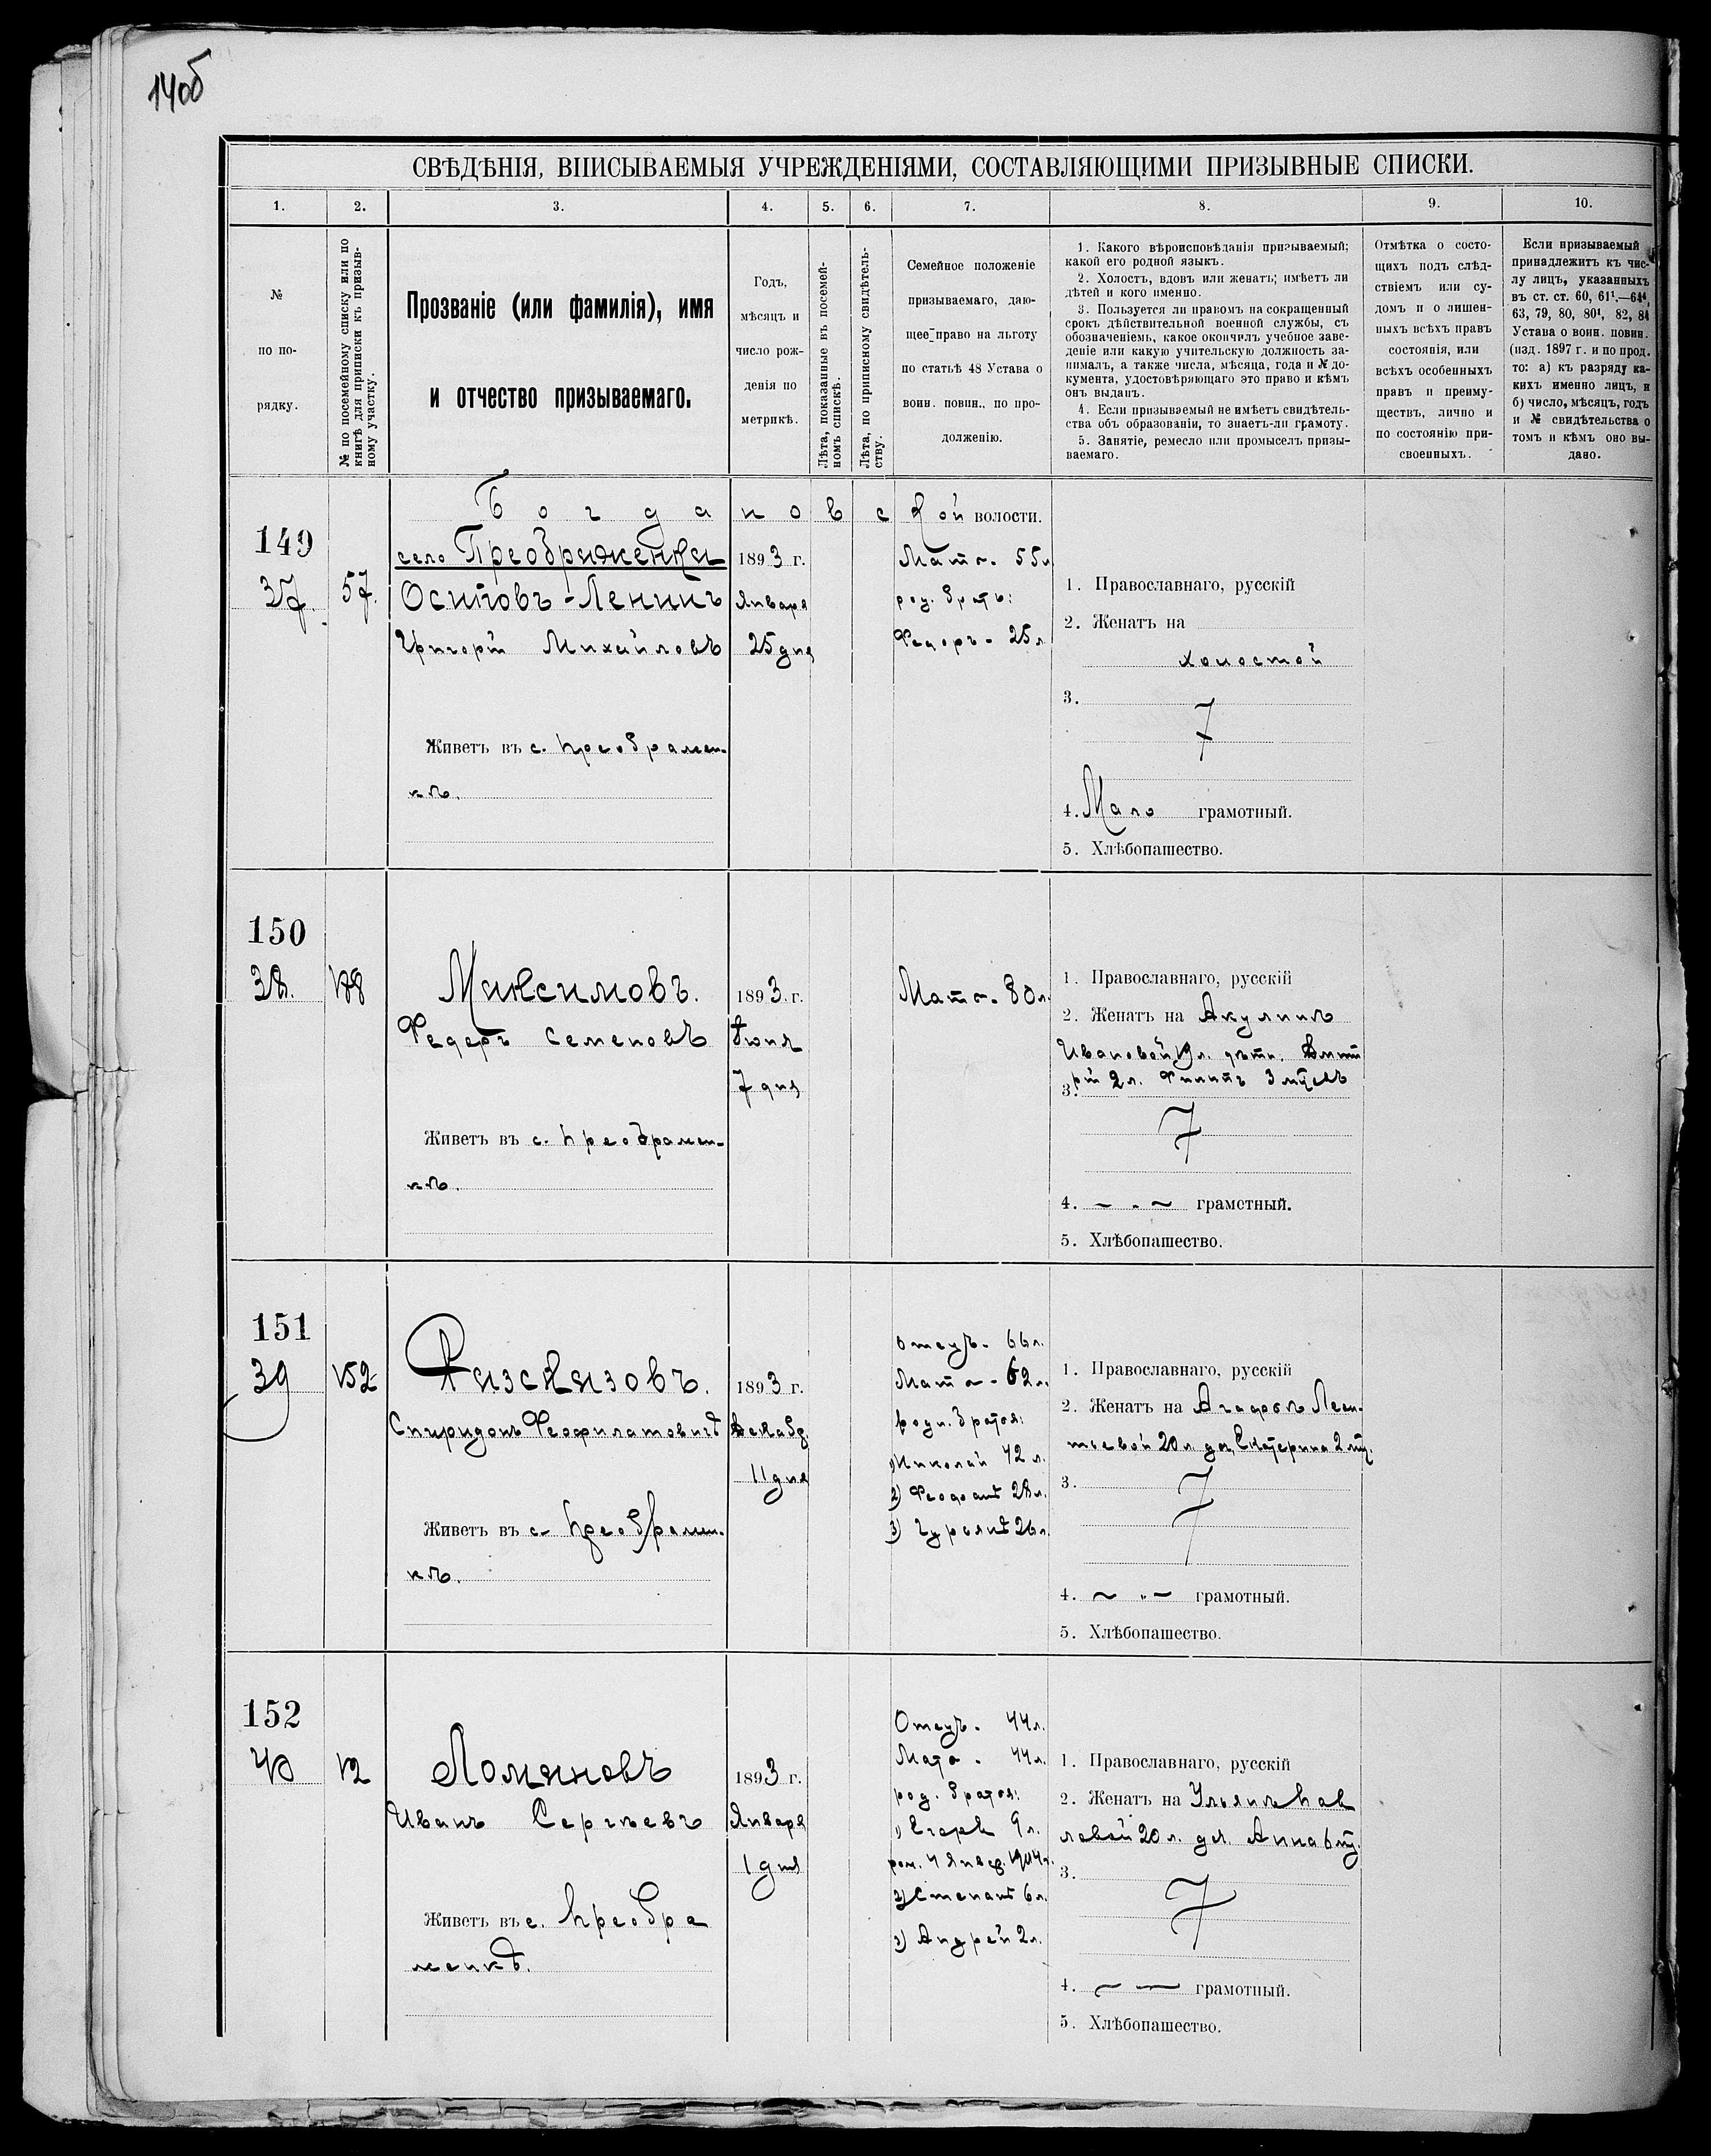 140б
СВѢДѢНІЯ, ВПИСЫВАЕМЫЯ УЧРЕЖДЕНІЯМИ, СОСТАВЛЯЮЩИМИ ПРИЗЫВНЫЕ СПИСКИ.
1. 2. 3. 4. 5. 6. 7. 8. 9. 10.
№
по по-
рядку.
№ по посемейному списку или по
книгѣ для приписки къ призыв-
ному участку.
Прозваніе (или фамилія), имя
и отчество призываемаго.
Годъ,
мѣсяцъ и
число рож-
денія по
метрикѣ.
Лѣта, показанные въ посемей-
номъ спискѣ.
Лѣта, по приписному свидѣтель-
ству.
Семейное положеніе
призываемаго, даю-
щее право на льготу
по статьѣ 48 Устава о
воин. повин., по про-
долженію.
1. Какого вѣроисповѣданія призываемый;
какой его родной языкъ.
2. Холостъ, вдовъ или женатъ; имѣетъ ли
дѣтей и кого именно.
3. Пользуется ли правомъ на сокращенный
срокъ дѣйствительной военной службы, съ
обозначеніемъ, какое окончилъ учебное заве-
деніе или какую учительскую должность за-
нималъ, а также числа, мѣсяца, года и № до-
кумента, удостовѣряющаго это право и кѣмъ
онъ выданъ.
4. Если призываемый не имѣетъ свидѣтель-
ства объ образованіи, то знаетъ-ли грамоту.
5. Занятіе, ремесло или промыселъ призы-
ваемаго.
Отмѣтка о состо-
щихъ подъ слѣд-
ствіемъ или су-
домъ и о лишен-
ныхъ всѣхъ правъ
состоянія, или
всѣхъ особенныхъ
правъ и преиму-
ществъ, лично и
по состоянію при-
своенныхъ.
Если призываемый
принадлежитъ къ чис-
лу лицъ, указанныхъ
въ ст. ст. 60, 61¹,—64⁴,
63, 79, 80, 80¹, 82, 84
Устава о воин. повин.
(изд. 1897 г. и по прод.
то: а) къ разряду ка-
кихъ именно лицъ, и
б) число, мѣсяцъ, годъ
и № свидѣтельства о
томъ и кѣмъ оно вы-
дано.
Богдановской волости.
149
37.
57.
село Преображенка
Осиповъ-Ленинъ
Григорій Михайловъ
Живетъ въ с. Преображен-
кѣ.
1893 г.
Января
25 дня
Мать - 55 л.
род. братъ:
Федоръ - 25 л.
1. Православнаго, русскій
2. Женатъ на
холостой
3.
4. Мало грамотный.
5. Хлѣбопашество.
150
38.
188
Максимовъ.
Федоръ Семеновъ
Живетъ въ с. Преображен-
кѣ.
1893 г.
Іюня
7 дня
Мать - 80 л.
1. Православнаго, русскій
2. Женатъ на Акулинѣ
Ивановой 19 л. дѣти: Дмит
рій 2 л. Филипъ 3 мцевъ
3.
4. грамотный.
5. Хлѣбопашество.
151
39
152
Разсказовъ.
Спиридонъ Феофилатовичъ
Живетъ въ с. Преображен-
кѣ.
1893 г.
Декабр.
11 дня
Отецъ - 66 л.
Мать - 62 л.
родн. братья:
1) Николай 42 л.
2) 28 л.
3) 26 л.
1. Православнаго, русскій
2. Женатъ на Агафьѣ Леон-
тьевой 20 л. доч. Екатерина 2 мц.
3.
4. грамотный.
5. Хлѣбопашество.
152
40
12
Ломановъ
Иванъ Сергѣевъ
Живетъ въ с. Преобра
женкѣ.
1893 г.
Января
1 дня
Отецъ - 44 л.
Мать - 44 л.
род. братья:
1) Егоръ 9 л.
рож. 4 Январ. 1904 г.
2) Степанъ 6 л.
3) Андрей 2 л.
1. Православнаго, русскій
2. Женатъ на Ульянѣ Пав
ловой 20 л. доч. Анна 6 мц.
3.
4. грамотный.
5. Хлѣбопашество.